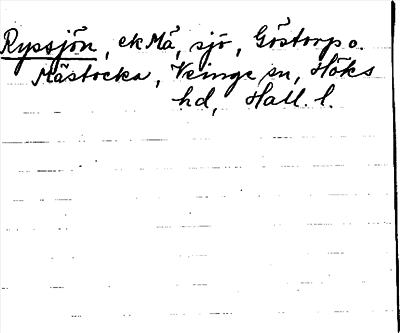 Ryssjön, ekMä, sjö, Göstorp o.
Mästocka, Veinge sn, Höks
hd, Hall. l.